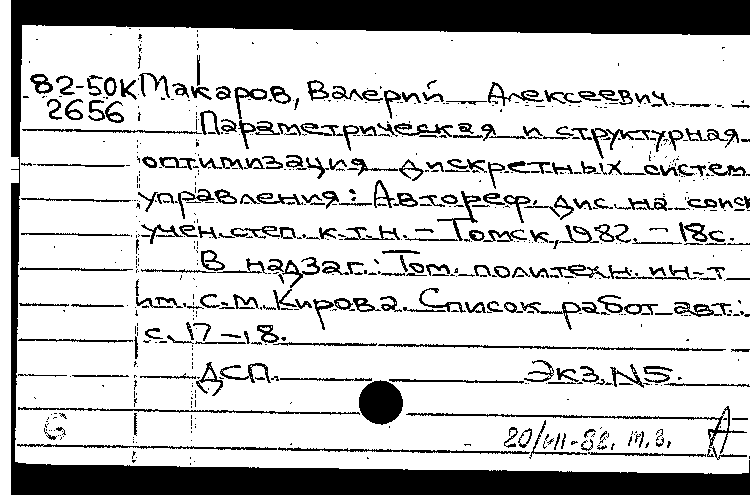 82-50К Макаров, Валерий Алексеевич
2656 Параметрическая и структурная
оптимизация дискретных систем
управления: Автореф. дис. на соиск
учен. степ. к.т.н. - Томск, 1982. - 18с.
В надзаг.: Том. политехн. ин-т
им. С.М. Кирова. Список работ авт.:
с. 17-18.
ДСП. Экз. N5.
20/VII-82. т.в.